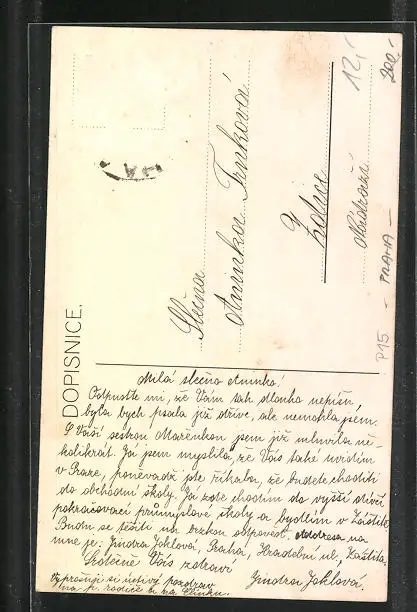 DOPISNICE.
Slečna
Aninka Trnková
Žalice
Nádraží
12,-
200,-
P15 - PRAHA -
Milá slečno Aninko!
Odpusťte mi, že Vám tak dlouho nepíši,
byla bych psala již dříve, ale nemohla jsem.
S Vaší sestrou Mařenkou jsem již mluvila ně-
kolikrát. Já jsem myslila, že Vás také uvidím
v Praze, poněvadž jste říkala, že budete choditi
do obchodní školy. Já zde chodím do vyšší dívčí
pokračovací průmyslové školy a bydlím v Záštitě.
Budu se těšiti na brzkou odpověď. Adresa na
mne je: Jindra Joklová, Praha, Hradební ul., Záštita.
Srdečně Vás zdraví
Jindra Joklová.
Vyprošuji si uctivý pozdrav
na p. rodiče a na